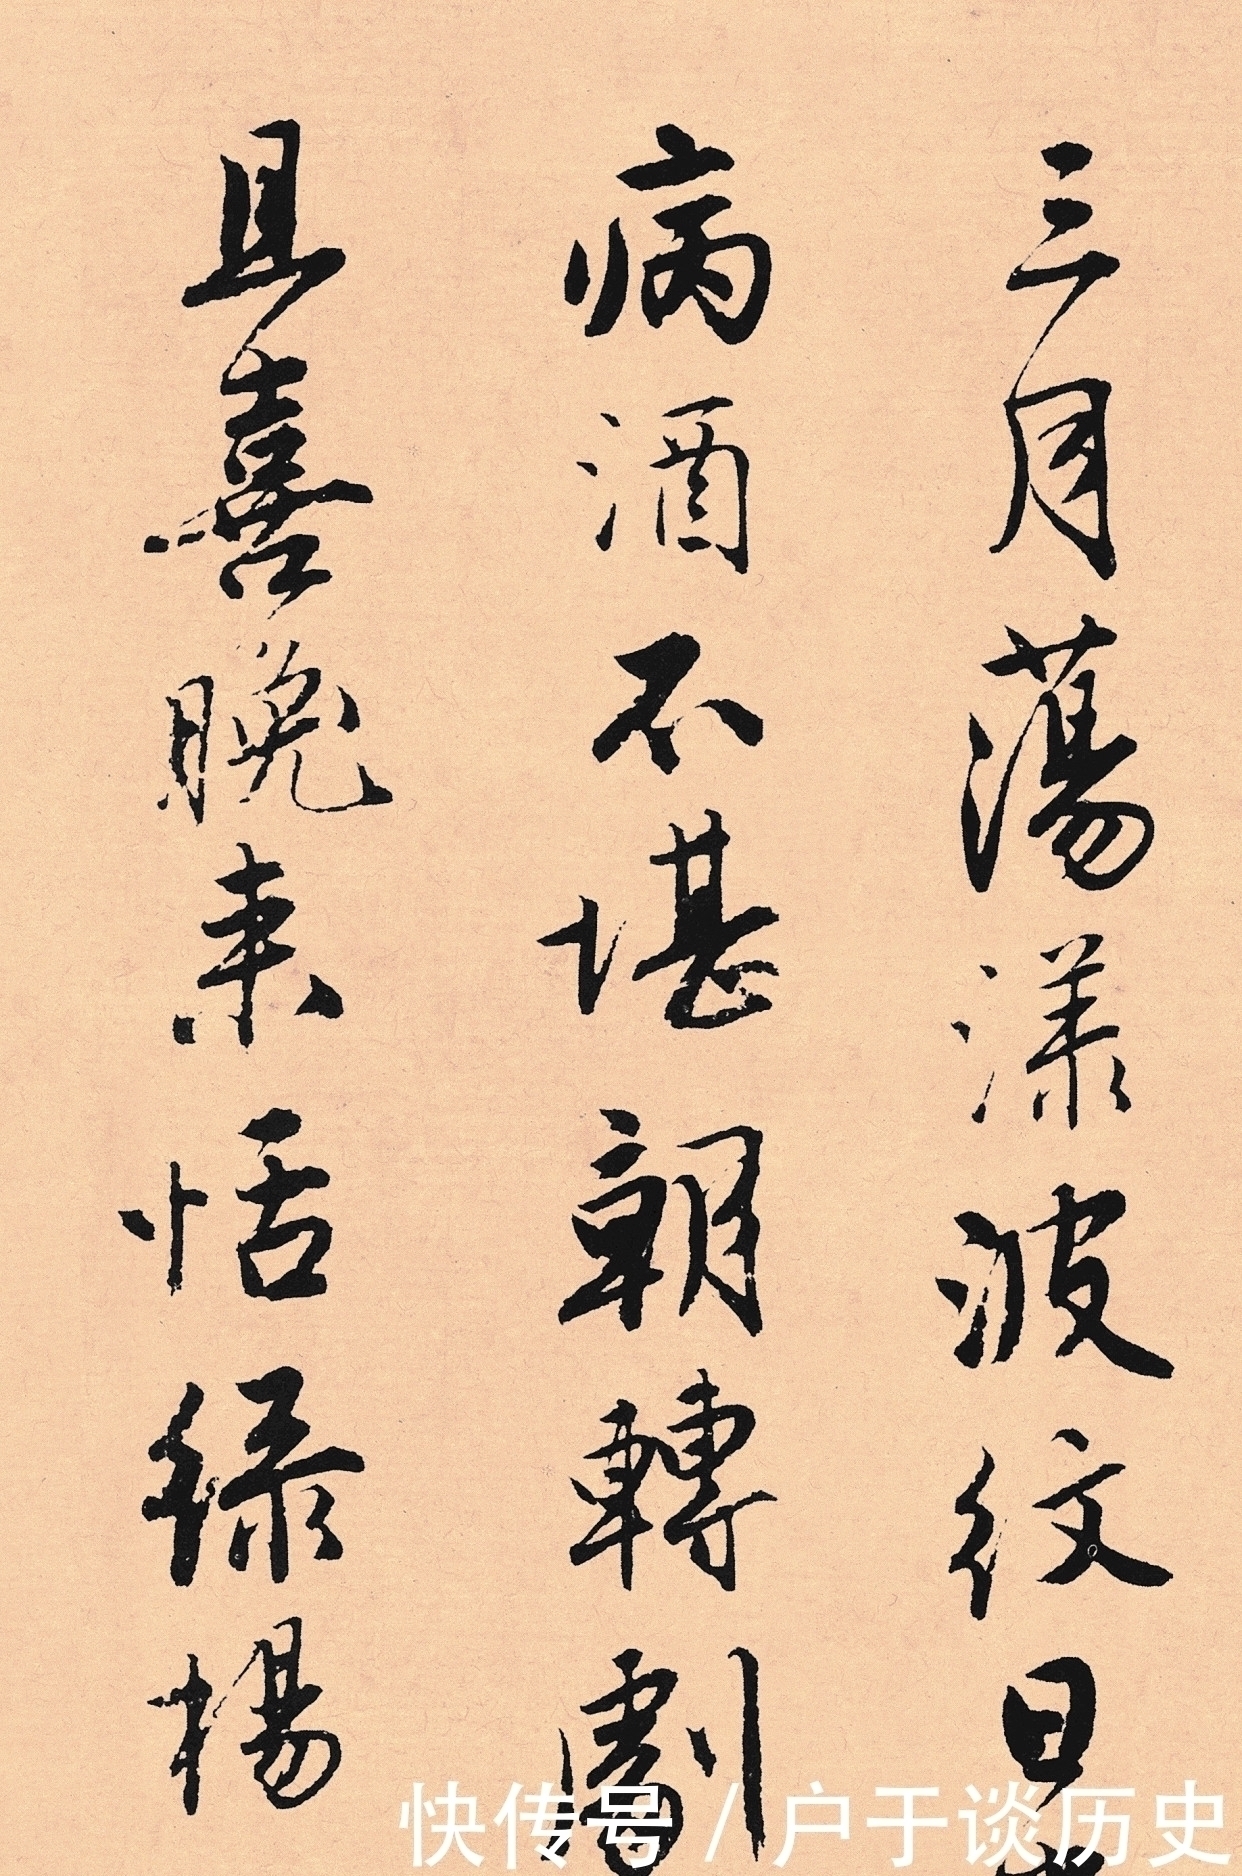 三月蕩漾波紋日
病酒不堪朝轉劇
且喜晚来恬緑楊
快传号 / 户于谈历史